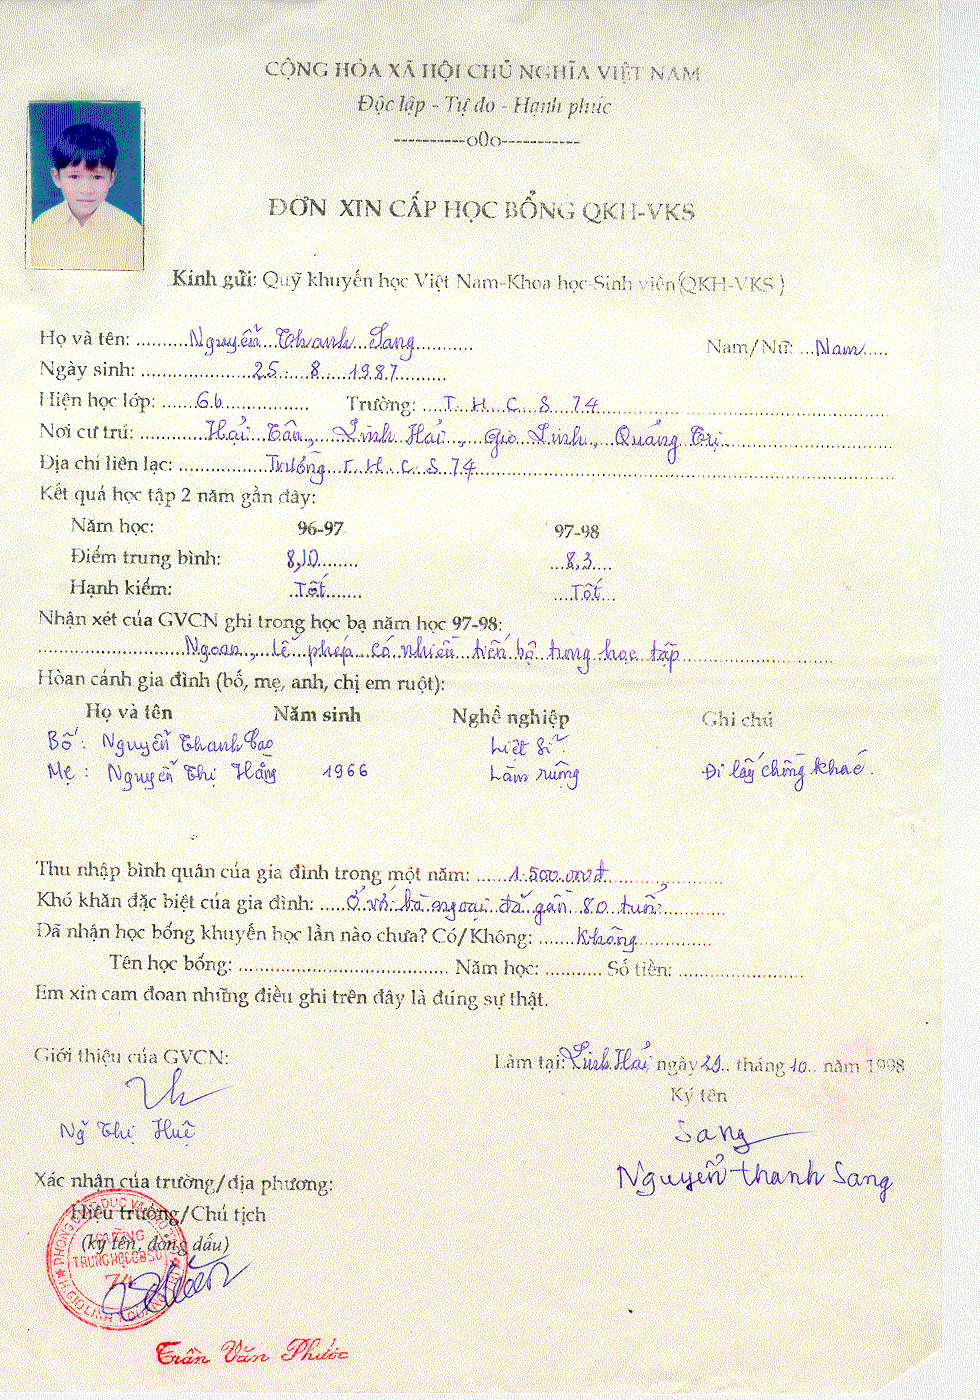 CỘNG HÒA XÃ HỘI CHỦ NGHĨA VIỆT NAM
Độc lập - Tự do - Hạnh phúc
----------o0o-----------
ĐƠN XIN CẤP HỌC BỔNG QKH-VKS
Kính gửi: Quỹ khuyến học Việt Nam-Khoa học-Sinh viên (QKH-VKS )
Họ và tên: Nguyễn Thanh Sang Nam/Nữ: Nam
Ngày sinh: 25. 8. 1987
Hiện học lớp: 6b Trường: T.H.C.S 74
Nơi cư trú: Hải Tân, Linh Hải, Gio Linh, Quảng Trị
Địa chỉ liên lạc: Trường T.H.C.S 74
Kết quả học tập 2 năm gần đây:
Năm học: 96-97 97-98
Điểm trung bình: 8,10 8,3
Hạnh kiểm: Tốt Tốt
Nhận xét của GVCN ghi trong học bạ năm học 97-98:
Ngoan, lễ phép, có nhiều tiến bộ trong học tập
Hòan cảnh gia đình (bố, mẹ, anh, chị em ruột):
Họ và tên Năm sinh Nghề nghiệp Ghi chú
Bố: Nguyễn Thanh Cao Liệt sĩ.
Mẹ: Nguyễn Thị Hằng 1966 Làm ruộng Đi lấy chồng khác.
Thu nhập bình quân của gia đình trong một năm: 1.500.000đ
Khó khăn đặc biệt của gia đình: Ở với bà ngoại đã gần 80 tuổi
Đã nhận học bổng khuyến học lần nào chưa? Có/Không: Không
Tên học bổng: Năm học: Số tiền:
Em xin cam đoan những điều ghi trên đây là đúng sự thật.
Giới thiệu của GVCN: Làm tại: Linh Hải, ngày 29 tháng 10 năm 1998
Ký tên
Ng Thị Huệ Sang
Nguyễn thanh Sang
Xác nhận của trường/địa phương:
Hiệu trưởng/Chủ tịch
(ký tên, đóng dấu)
TRƯỜNG
TRUNG HỌC CƠ SỞ
74
H. GIO LINH T. QUẢNG TRỊ
Trần Văn Phước